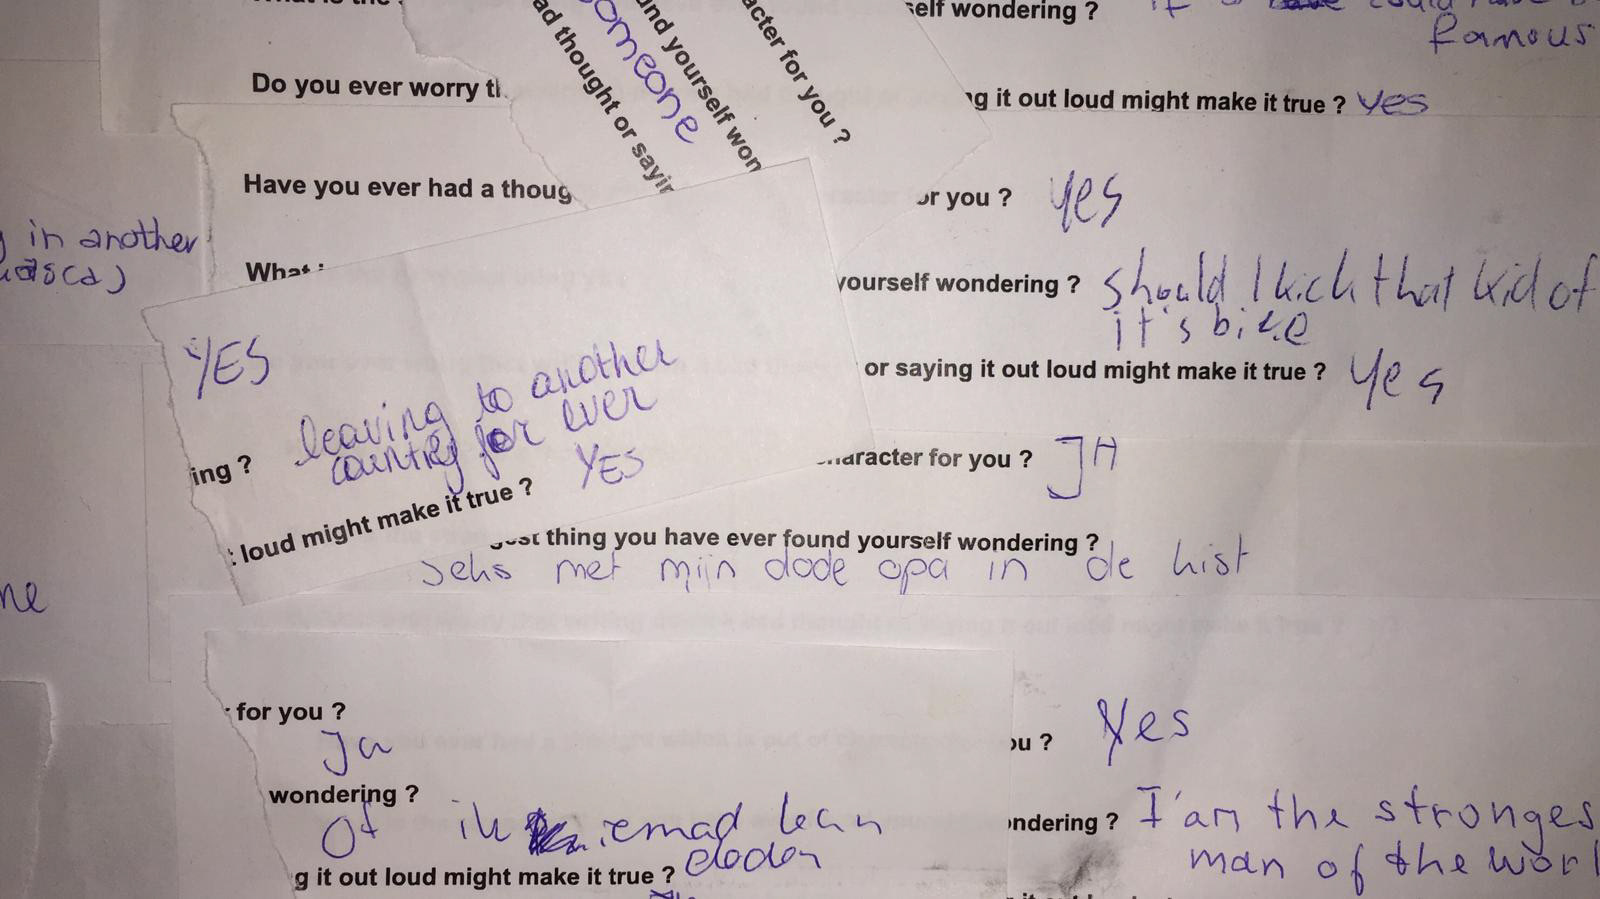 self wondering ?
famous
someone
Do you ever worry
ad thought or sayin
und yourself won
acter for you ?
g it out loud might make it true ? yes
Have you ever had a thoug
or you ? yes
in another
What
yourself wondering ? should I kick that kid of
it's bike
or saying it out loud might make it true ? Yes
YES
leaving to another
country for ever
ing ?
loud might make it true ? YES
aracter for you ? JA
thing you have ever found yourself wondering ?
seks met mijn dode opa in de kist
for you ?
Ja
ou ? Yes
wondering ?
Of ik iemad kan
doden
ndering ? I'am the stronges
man of the worl
g it out loud might make it true ?